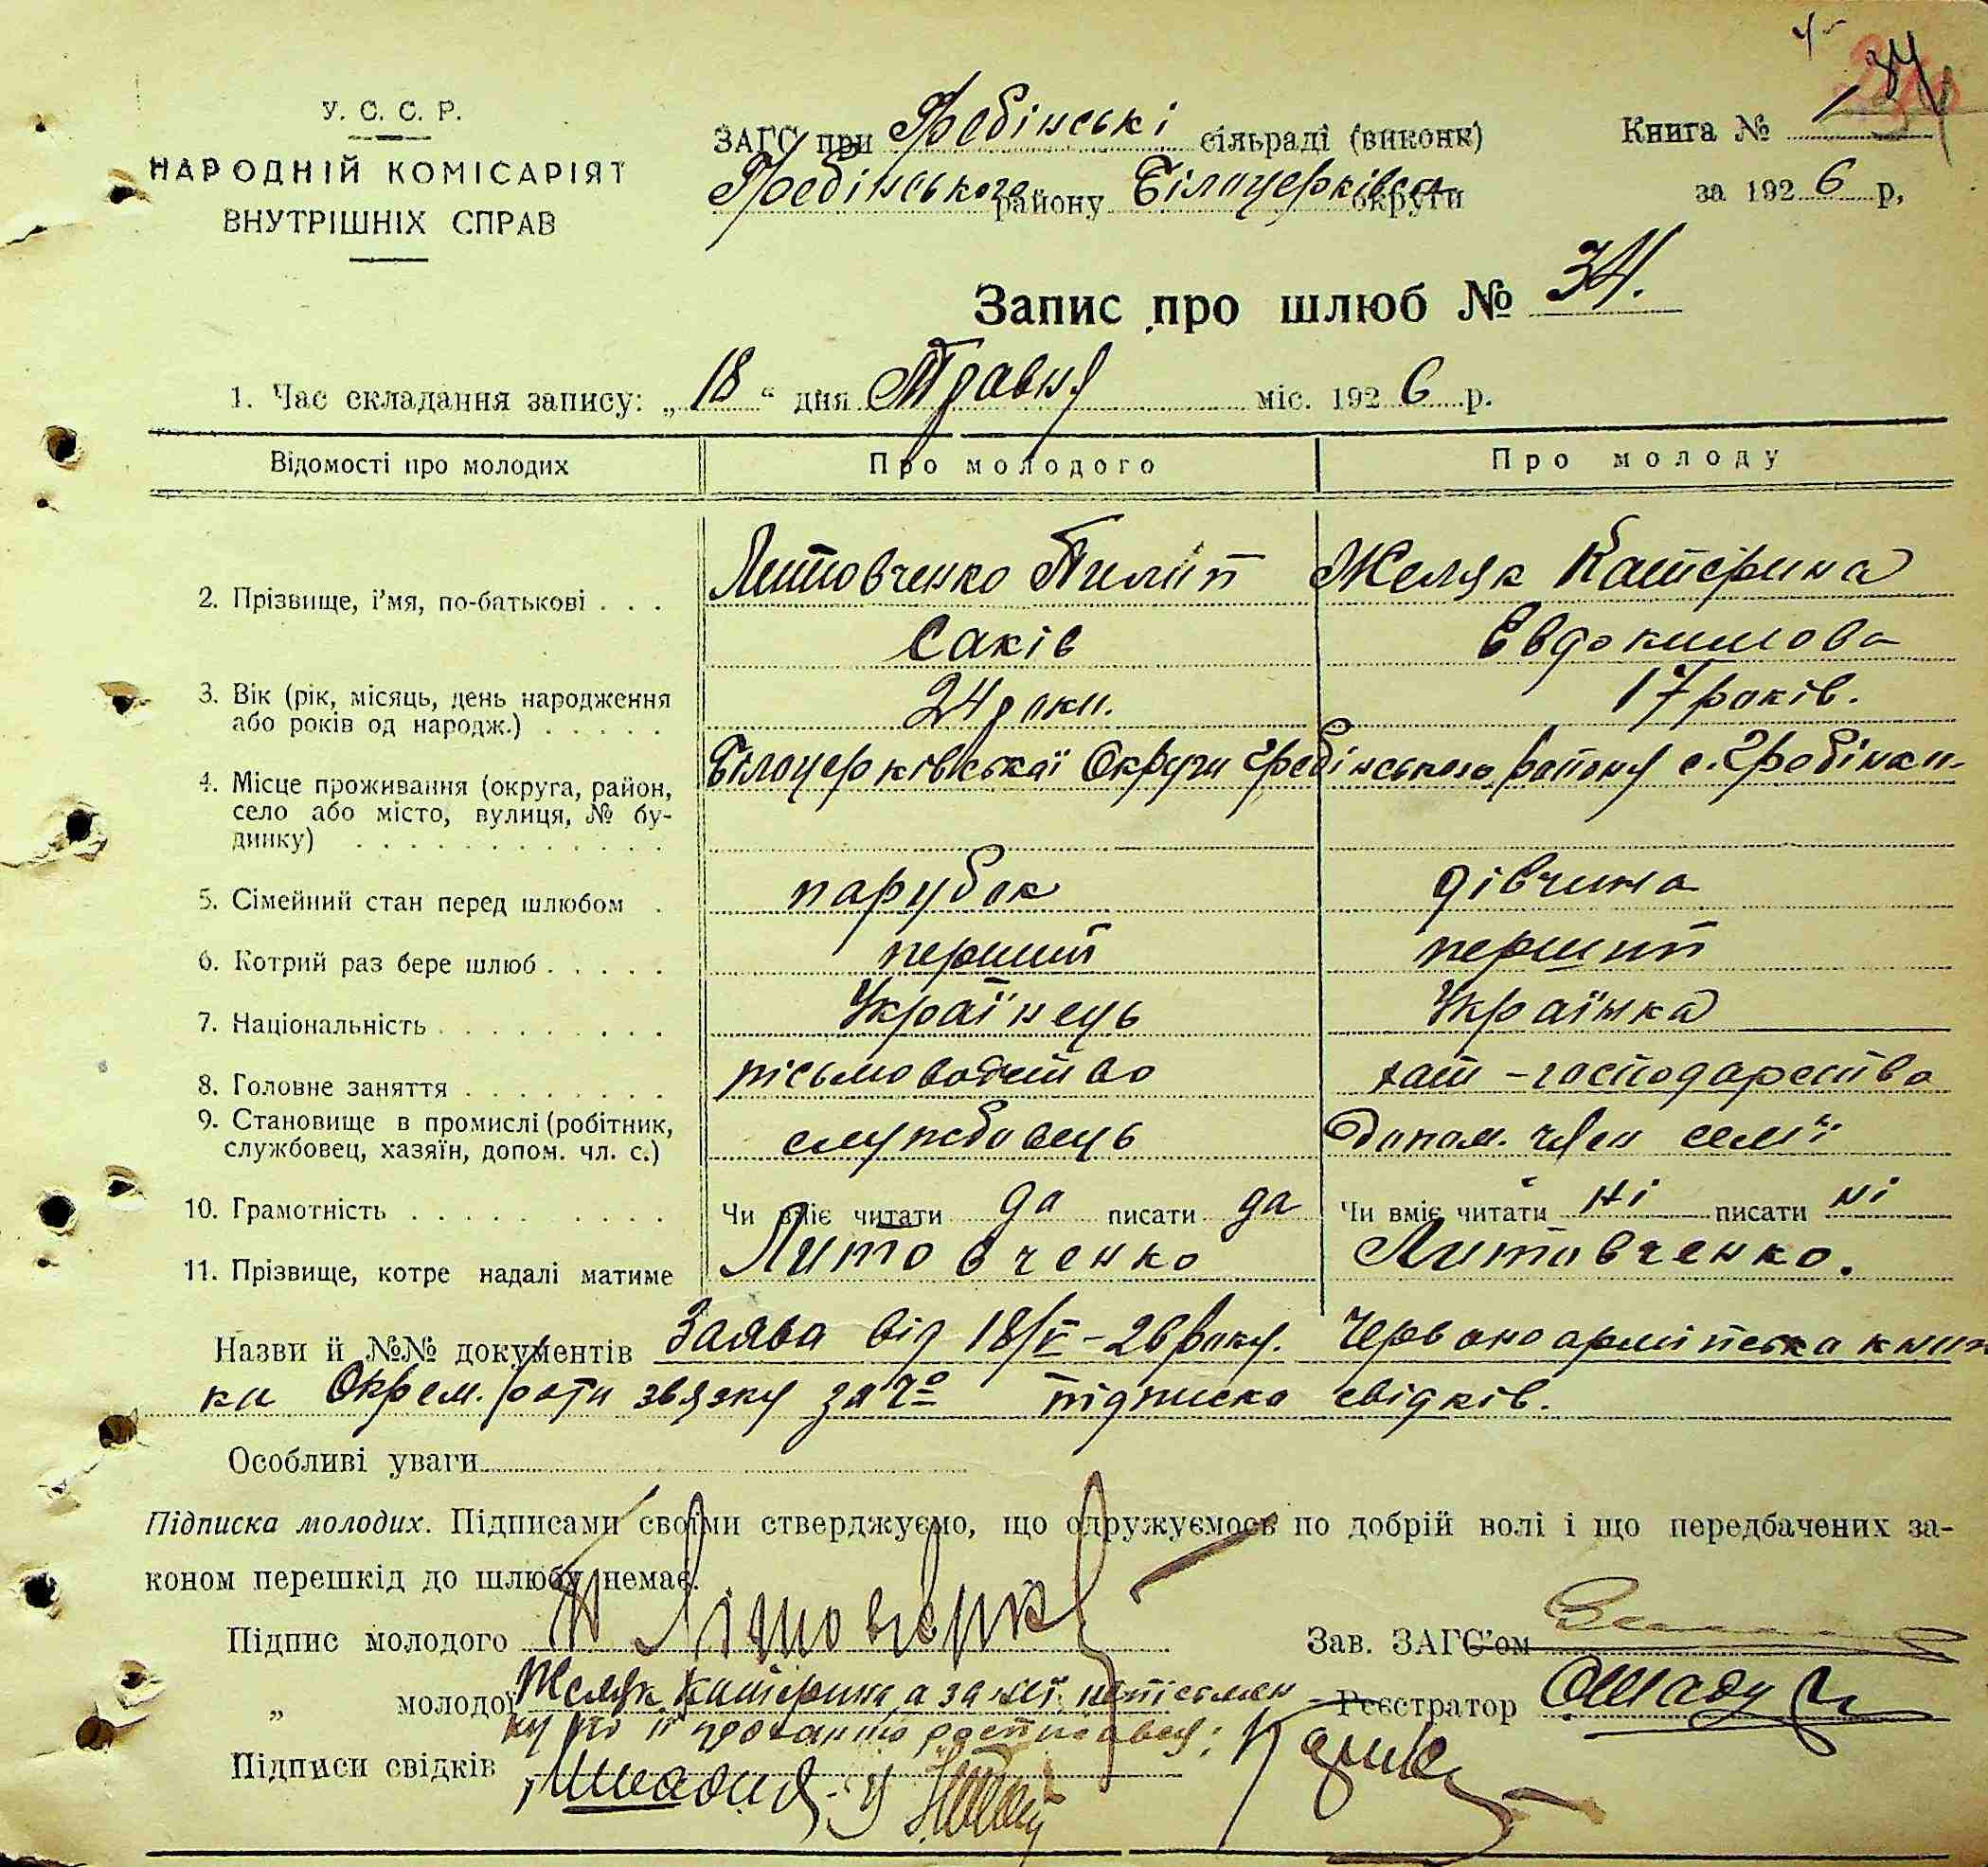 У. С. С. Р.
НАРОДНІЙ КОМІСАРІЯТ
ВНУТРІШНІХ СПРАВ
ЗАГС при Гребінські сільраді (виконк)
Гребінського району Білоцерківськ округи
Книга № 1
за 1926 р,
34
Запис про шлюб № 34.
1. Час складання запису: „18“ дня Травня міс. 1926 р.
Відомості про молодих Про молодого Про молоду
2. Прізвище, і'мя, по-батькові . . . Литовченко Пилип Желяк Катерина
Саків Евдокимова
3. Вік (рік, місяць, день народження або років од народж.) . . . . . 24 роки. 17 років.
4. Місце проживання (округа, район, село або місто, вулиця, № будинку) . . . Білоцерківської Округи Гребінського району с. Гребінки
5. Сімейний стан перед шлюбом . парубок дівчина
6. Котрий раз бере шлюб . . . . . перший перший
7. Національність . . . . . . . . . Українець Українка
8. Головне заняття . . . . . . . . пісьмоводство хат-господарство
9. Становище в промислі (робітник, службовець, хазяїн, допом. чл. с.) службовець Допом. член семʼї
10. Грамотність . . . . . . . . . Чи вміє читати да писати да Чи вміє читати ні писати ні
11. Прізвище, котре надалі матиме Литовченко Литовченко.
Назви й №№ документів Заява від 18/V-26 року. Червоноармійська книж
ки Окрем. роти звязку за № підписка свідків.
Особливі уваги
Підписка молодих. Підписами своїми стверджуємо, що одружуємось по добрій волі і що передбачених за-
коном перешкід до шлюбу немає.
Підпис молодого П Літовченко
Зав. ЗАГС'ом
„ молодої Желяк Катерина, а за неї непісьмен
ну по її проханню росписався:
Реєстратор
Підписи свідків